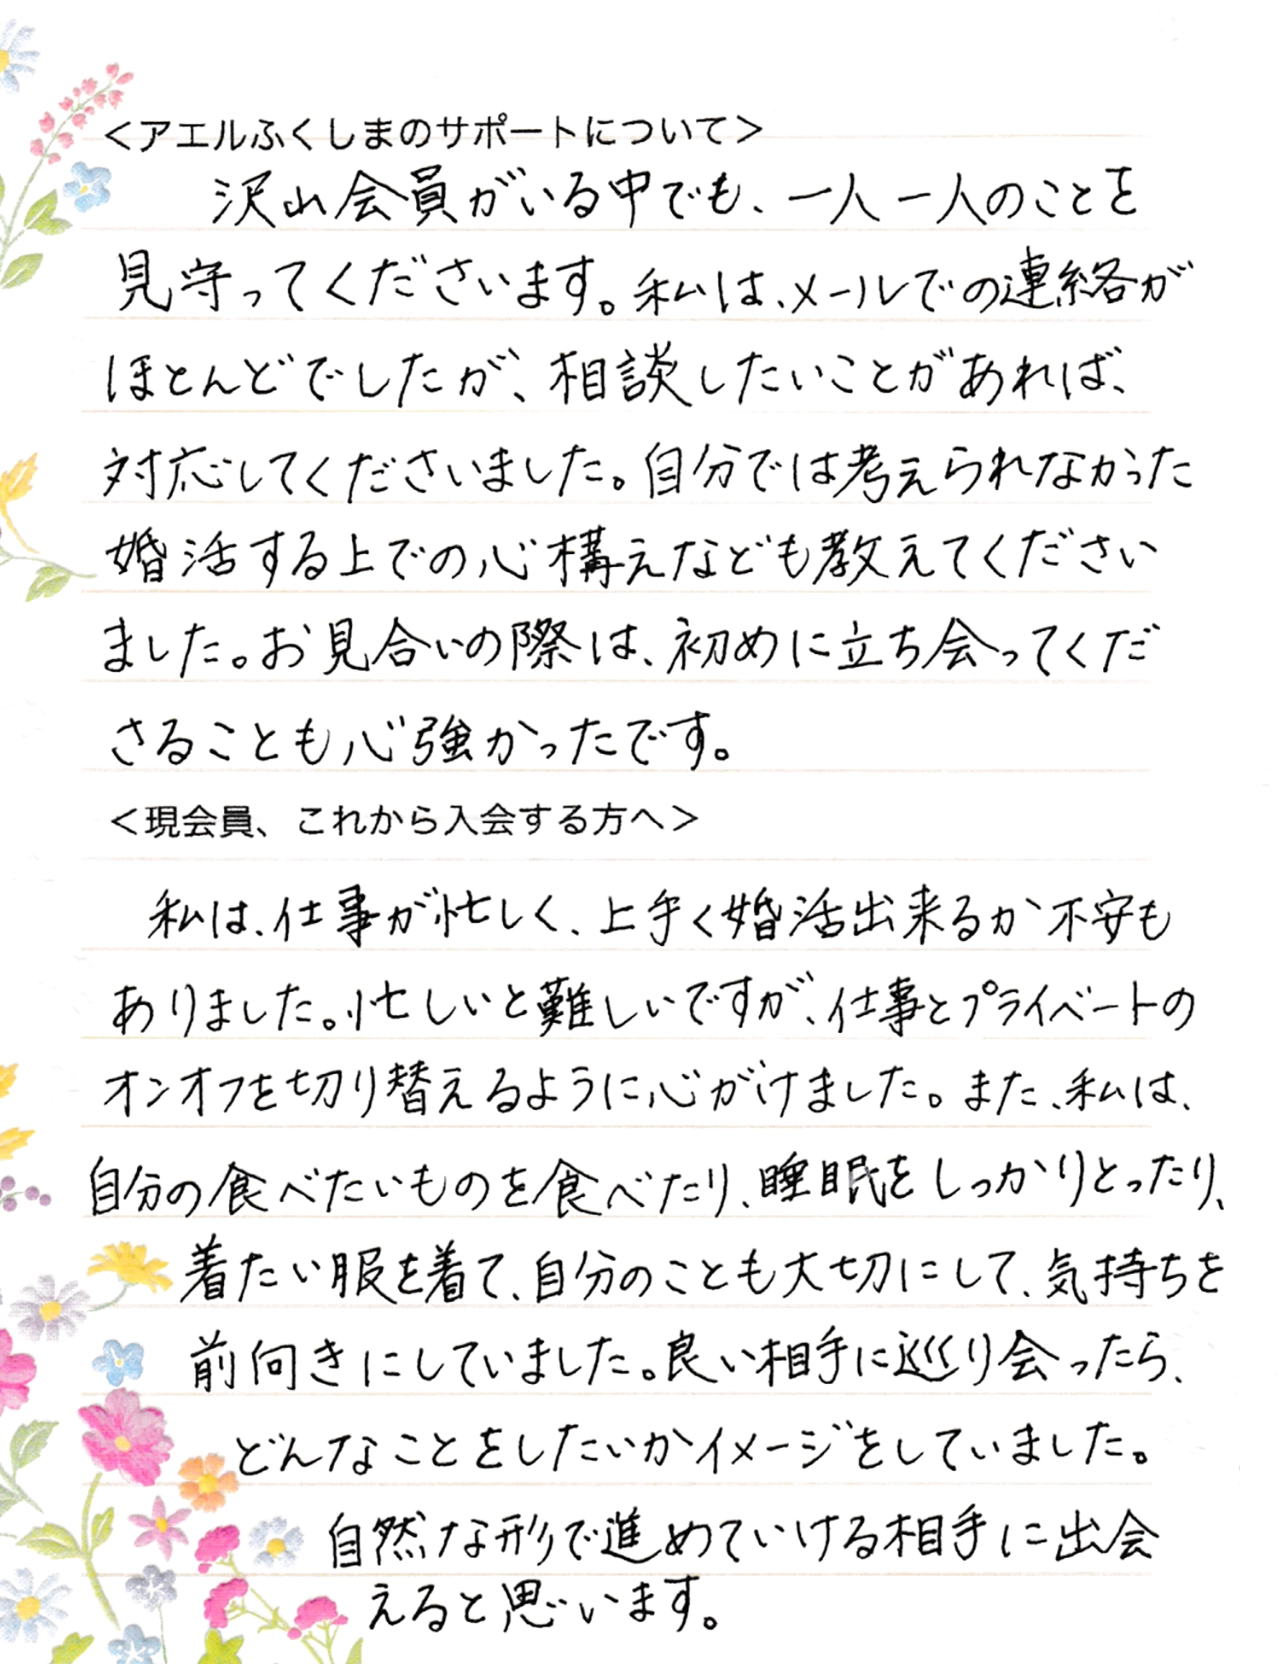 ＜アエルふくしまのサポートについて＞
沢山会員がいる中でも、一人一人のことを
見守ってくださいます。私は、メールでの連絡が
ほとんどでしたが、相談したいことがあれば、
対応してくださいました。自分では考えられなかった
婚活する上での心構えなども教えてください
ました。お見合いの際は、初めに立ち会ってくだ
さることも心強かったです。
＜現会員、これから入会する方へ＞
私は、仕事が忙しく、上手く婚活出来るか不安も
ありました。忙しいと難しいですが、仕事とプライベートの
オンオフを切り替えるように心がけました。また、私は、
自分の食べたいものを食べたり、睡眠をしっかりとったり、
着たい服を着て、自分のことも大切にして、気持ちを
前向きにしていました。良い相手に巡り会ったら、
どんなことをしたいかイメージをしていました。
自然な形で進めていける相手に出会
えると思います。